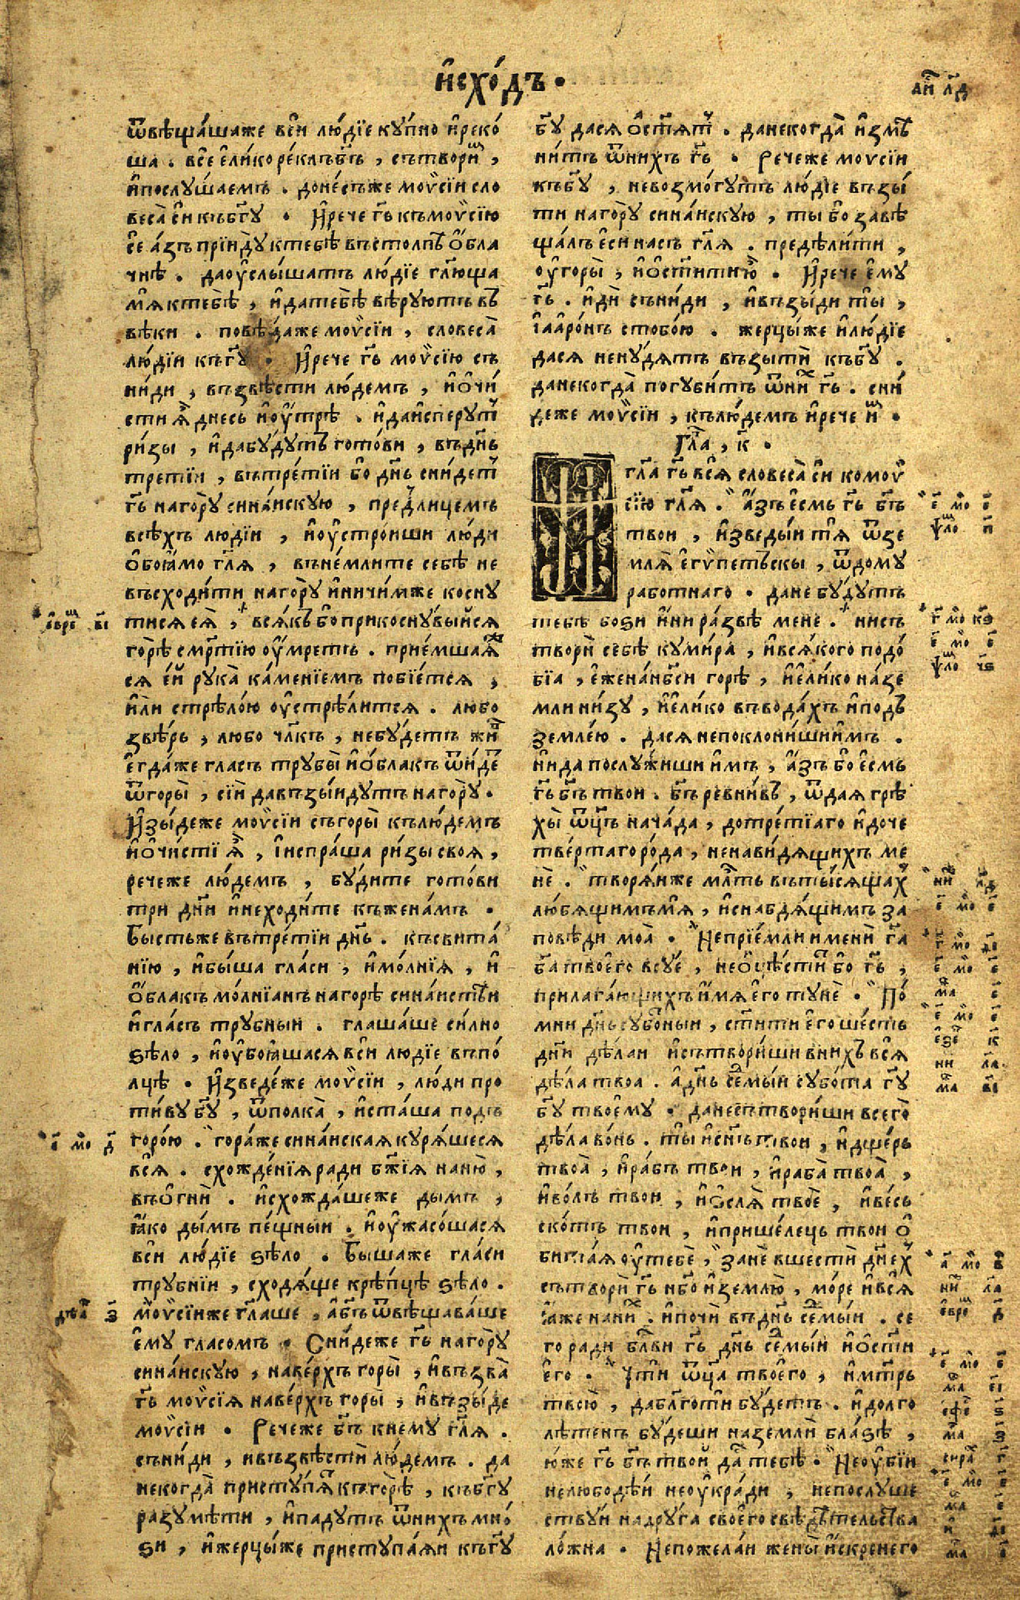 и҆схо́дъ.
ѿвѣща́шаже вси̑ лю́дїе ку́пно и҆реко́
ша . все̑ є҆лико ре́клъ бг҃ъ , сътвори́м ,
и҆послу́шаемъ . доне́съже моѵ̈сїи сло
веса̀ сїи къ бг҃у . И҆рече гь҃ къмоѵ̈сїю
се̑ а҆́зъ прїиду ктебѣ̀ въстолпѣ̀ о҆́бла
чнѣ . даоу҆слы́шатъ лю́дїе гл҃юща
мѧ̀ ктебѣ̀ , и҆датебѣ̀ вѣ́руютъ въ
вѣ́ки . повѣ́даже моѵ̈сїи , словеса̀
лю́дїи къ гу҃ . И҆рече гь҃ моѵ̈сїю съ
ни́ди , възвѣсти лю́демъ , и҆ѡ҆чи́
сти ѧ҆̀ днесь и҆оу҆́трѣ . и҆даи҆сперу́т
ри́зы , и҆дабу́дутъ гото́ви , въдн҃ь
тре́тїи , вътре́тїи бо дн҃ь сни́дет
гь҃ нагору̀ сина́искую , предлице́мъ
всѣ́хъ лю́дїи , и҆оу҆стро́иши лю́ди
ѻ҆́боꙗмо гл҃ѧ , въне́млите себѣ̀ не
въсходи́ти нагору̀ и҆ничи́мже косну
тисѧ еѧ̀ , всѧ́къ бо прикосну́выйсѧ
горѣ̀ сме́ртїю оу҆́мретъ . прїе́мшаѧ
сѧ е҆й рука̀ ка́менїемъ побїе́тсѧ ,
и҆ли стрѣло́ю оу҆стрѣ́литсѧ . лю́бо
звѣ́рь , лю́бо чл҃къ , небу́детъ жи́в
є҆гда́же гласъ трубы̀ и҆ѻ҆́блакъ ѿи́де
ѿгоры̀ , сїи давъзы́идутъ нагору̀ .
И҆зы́деже моѵ̈сїи съгоры̀ къ лю́демъ
и҆ѡ҆чи́сти ѧ҆̀ , і҆испра́ша ри́зы своѧ̀ ,
речеже лю́демъ , бу́дите гото́ви
три дн҃и и҆неходи́те къжена́мъ .
Бы́стьже вътре́тїи дн҃ь . късвита́
нїю , и҆бы́ша гла́си , и҆мо́лнїѧ , и҆
ѻ҆́блакъ мо́лнїанъ нагорѣ̀ сина́истѣи
и҆гла́съ тру́бныи . глаша́ше си́лно
ѕѣло̀ , и҆оу҆боꙗ́шасѧ вси̑ лю́дїе въпо́
лцѣ . И҆зведе́же моѵ̈сїи , лю́ди про
ти́ву бг҃у , ѿполка̀ , и҆ста́ша подъ
горо́ю . гора́же сина́искаѧ курѧ́шесѧ
всѧ̀ . схожде́нїѧ ради бж҃їѧ наню̀ ,
въѻ҆гнѝ . и҆схожда́шеже ды́мъ ,
ꙗ҆́ко ды́мъ пе́щныи . и҆оу҆жасо́шасѧ
вси̑ лю́дїе ѕѣло̀ . Бы́шаже гла́си
тру́бнїи , сходѧ́ще крѣ́пцѣ ѕѣло̀ .
моѵ̈сїиже гл҃аше , а҆бг҃ъ ѿвѣщава́ше
є҆му гласомъ . Сни́деже гь҃ нагору̀
сина́искую , наве́рхъ горы̀ , и҆възва̀
гь҃ моѵ̈сїѧ наве́рхъ горы̀ , и҆възы́де
моѵ̈сїи . Речеже бг҃ъ кнему гл҃ѧ .
съни́ди , ивъзвѣстѝ лю́демъ . да
некогда̀ присту́пѧ къгорѣ̀ , къ бг҃у
разумѣ́ти , и҆паду́тъ ѿни́хъ мно́
ѕи , и҆жерцы́же приступа́ѧи къ гу҃
аі҆ л҃д
бг҃у дасѧ ѻ҆ст҃ѧт . данекогда̀ и҆змѣ
ни́тъ ѿни́хъ гь҃ . Речеже моѵ̈сїи
къ бг҃у , невозмо́гутъ лю́дїе възы́
ти нагору̀ сина́искую , ты̀ бо завѣ
ща́лъ є҆сѝ насъ гл҃ѧ . предѣли́ти ,
оу҆горы̀ , и҆ѻ҆ст҃и́ти ю҆̀ . И҆рече є҆му
гь҃ . и҆дѝ съни́ди , и҆възы́ди ты̀ ,
і҆ааро́нъ стобо́ю . жерцы́же и҆лю́дїе
дасѧ нену́дѧтъ възытѝ къ бг҃у .
данекогда̀ погу́битъ ѿни́х гь҃ . сни́
деже моѵ̈сїи , къ лю́демъ и҆рече и҆м .
Гл҃а , к҃ .
И҆гл҃а гь҃ всѧ̑ словеса̀ сїи комоѵ̈
сїю гл҃ѧ . а҆́зъ є҆смь гь҃ бг҃ъ
твои , и҆зведы́и тѧ̀ ѿзе
млѧ̀ є҆гѵ́петьскы , ѿдому
рабо́тнаго . дане бу́дутъ
тебѣ̀ бо́ѕи и҆ни ра́звѣ мене . несъ
творѝ себѣ̀ куми́ра , и҆всѧ́кого подо́
бїа , є҆женанб҃си горѣ̀ , и҆е҆ли́ко на́зе
мли ни́зу , и҆е҆ли́ко въвода́хъ и҆подъ
земле́ю . дасѧ непоклони́ши и҆́мъ .
ни да послу́жиши и҆мъ , а҆́зъ бо є҆смь
гь҃ бг҃ъ твои . бг҃ъ ревни́въ , ѿдаѧ грѣ
хы̀ ѿц҃ъ нача́да , дотре́тїаго и҆доче
тве́ртаго ро́да , ненави́дѧщихъ ме
нѐ . творѧ́иже мл҃ть въты́сѧщах
лю́бѧщимъ мѧ̀ , и҆снабдѧ́щимъ за
повѣди моѧ̀ . Непрїе́мли имени гь҃а
бг҃а твоего̀ всу́е , неѡ҆чи́стит бо гь҃ ,
прилага́ющихъ и҆мѧ є҆го ту́не . По́
мни дн҃ь субо́тныи , ст҃и́ти є҆го ше́сть
дн҃и дѣ́лаи и҆сътвори́ши вни́хъ всѧ̀
дѣ́ла твоа . а҆дн҃ь седмы́и субо́та гу҃
бг҃у твоему̀ . данесътвори́ши всего̀
дѣ́ла во́нь . ты̀ и҆сн҃ъ твои , и҆дще́рь
твоѧ̀ , и҆ра́бъ твои , и҆раба̀ твоѧ̀ ,
и҆во́лъ твои , и҆ѻ҆слѧ̀ твоѐ , и҆весь
ско́тъ твои , и҆прише́лець твои ѻ҆
бита́ѧ оу҆тебѐ , занѐ вше́сти дн҃ех
сътворѝ гь҃ нб҃о и҆землю , мо́ре и҆всѧ̀
ꙗ҆же на ни́х . и҆почѝ въдн҃ь седмы́и . се
го ра́ди бл҃ви гь҃ дн҃ь седмы́и и҆ѻ҆ст҃и
є҆го . Чтѝ ѿц҃а твоего̀ , и҆мт҃рь
твою̀ , дабл҃го ти бу́детъ . и҆долго
лѣ́тенъ бу́деши наземлѝ бл҃аѕѣ ,
ю҆же гь҃ бг҃ъ тво́й да́ст тебѣ̀ . Неоубїи
нелюбодѣ́и неоу҆кра́ди , непослуше
ствуи надру́га своего̀ свѣдѣтельства
ло́жна . Непожела́и жены̀ и҆́скренего